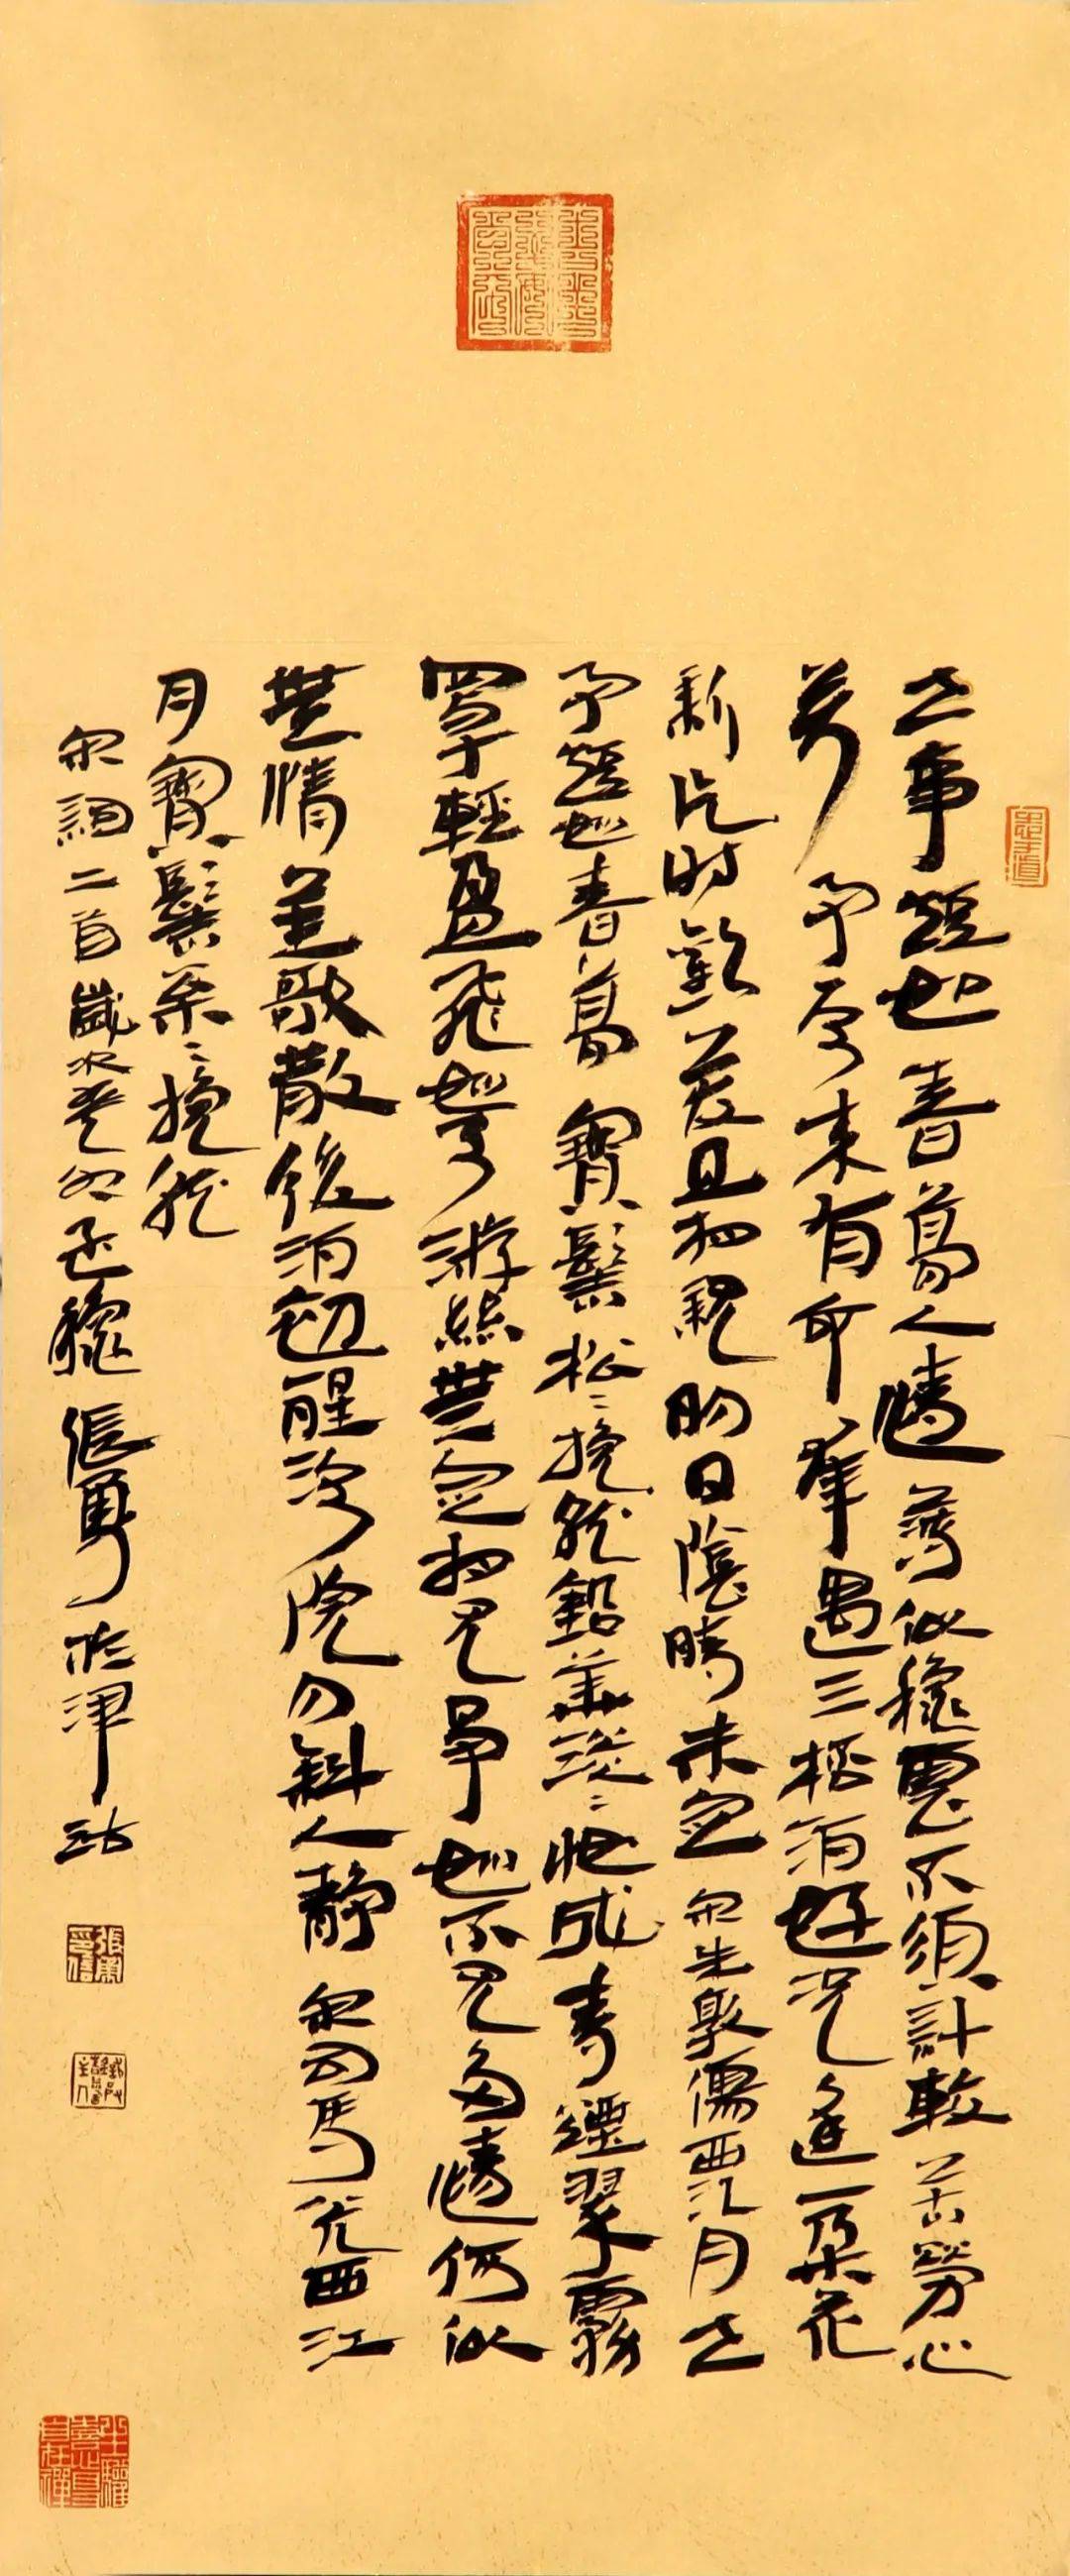 世事短如春夢人情薄似秋雲不須計較苦勞心
萬事原來有命幸遇三杯酒好況逢一朵花
新片時歡笑且相親明日陰晴未定宋朱敦儒西江月世
事短如春夢寶髻松〻挽就鉛華淡〻妝成青煙翠霧
罩輕盈飛絮游絲無定相見爭如不見多情何似
無情笙歌散後酒初醒深院月斜人靜宋司馬光西江
月寶髻松〻挽就
宋詞二首歲次癸卯孟秋張勇於津沽
張勇印信